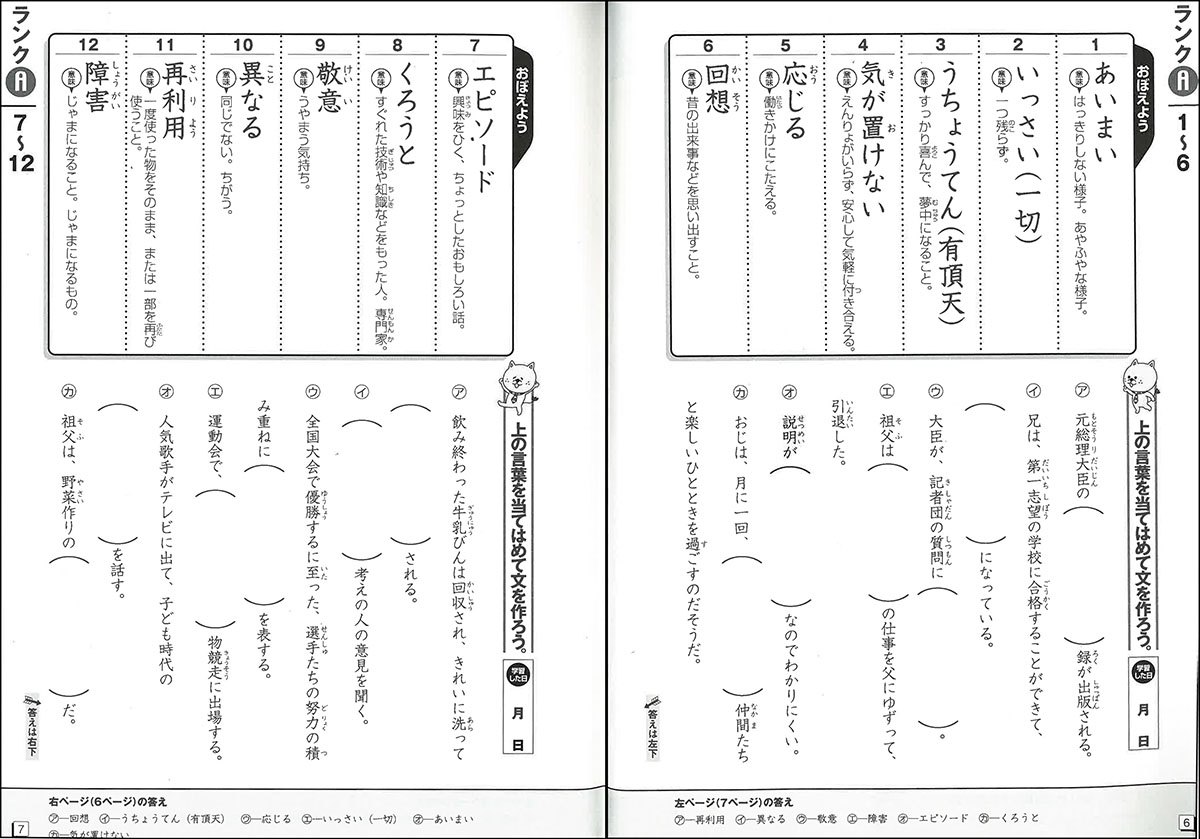 ランク A 1〜6
おぼえよう
1 あいまい
意味 はっきりしない様子。あやふやな様子。
2 いっさい(一切)
意味 一つ残らず。
3 うちょうてん(有頂天)
意味 すっかり喜んで、夢中になること。
4 気が置けない
意味 えんりょがいらず、安心して気軽に付き合える。
5 応じる
意味 働きかけにこたえる。
6 回想
意味 昔の出来事などを思い出すこと。
上の言葉を当てはめて文を作ろう。
学習した日 月 日
㋐ 元総理大臣の( )録が出版される。
㋑ 兄は、第一志望の学校に合格することができて、
( )になっている。
㋒ 大臣が、記者団の質問に( )。
㋓ 祖父は( )の仕事を父にゆずって、
引退した。
㋔ 説明が( )なのでわかりにくい。
㋕ おじは、月に一回、( )仲間たち
と楽しいひとときを過ごすのだそうだ。
答えは左下
左ページ(7ページ)の答え
㋐―再利用 ㋑―異なる ㋒―敬意 ㋓―障害 ㋔―エピソード ㋕―くろうと
6
ランク A 7〜12
おぼえよう
7 エピソード
意味 興味をひく、ちょっとしたおもしろい話。
8 くろうと
意味 すぐれた技術や知識などをもった人。専門家。
9 敬意
意味 うやまう気持ち。
10 異なる
意味 同じでない。ちがう。
11 再利用
意味 一度使った物をそのまま、または一部を再び
使うこと。
12 障害
意味 じゃまになること。じゃまになるもの。
上の言葉を当てはめて文を作ろう。
学習した日 月 日
㋐ 飲み終わった牛乳びんは回収され、きれいに洗って
( )される。
㋑ ( )考えの人の意見を聞く。
㋒ 全国大会で優勝するに至った、選手たちの努力の積
み重ねに( )を表する。
㋓ 運動会で、( )物競走に出場する。
㋔ 人気歌手がテレビに出て、子ども時代の
( )を話す。
㋕ 祖父は、野菜作りの( )だ。
答えは右下
右ページ(6ページ)の答え
㋐―回想 ㋑―うちょうてん(有頂天) ㋒―応じる ㋓―いっさい(一切) ㋔―あいまい
㋕―気が置けない
7